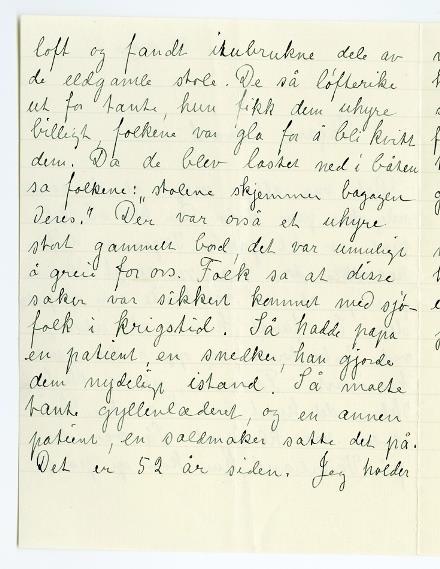 loft og fandt itubrukne dele av
de eldgamle stole. De så løfterike
ut for tante, hun fikk dem uhyre
billigt, folkene var gla for å bli kvitt
dem. Da de blev lastet ned i båten
sa folkene: "stolene skjemmer bagagen
Deres." Der var også et uhyre
stort gammelt bord, det var umuligt
å greie for oss. Folk sa at disse
saker var sikkert kommet med sjø-
folk i krigstid. Så hadde papa
en patient, en snedker, han gjorde
dem nydeligt istand. Så malte
tante gyllenlæderet, og en annen
patient, en salmaker satte det på.
Det er 52 år siden. Jeg holder